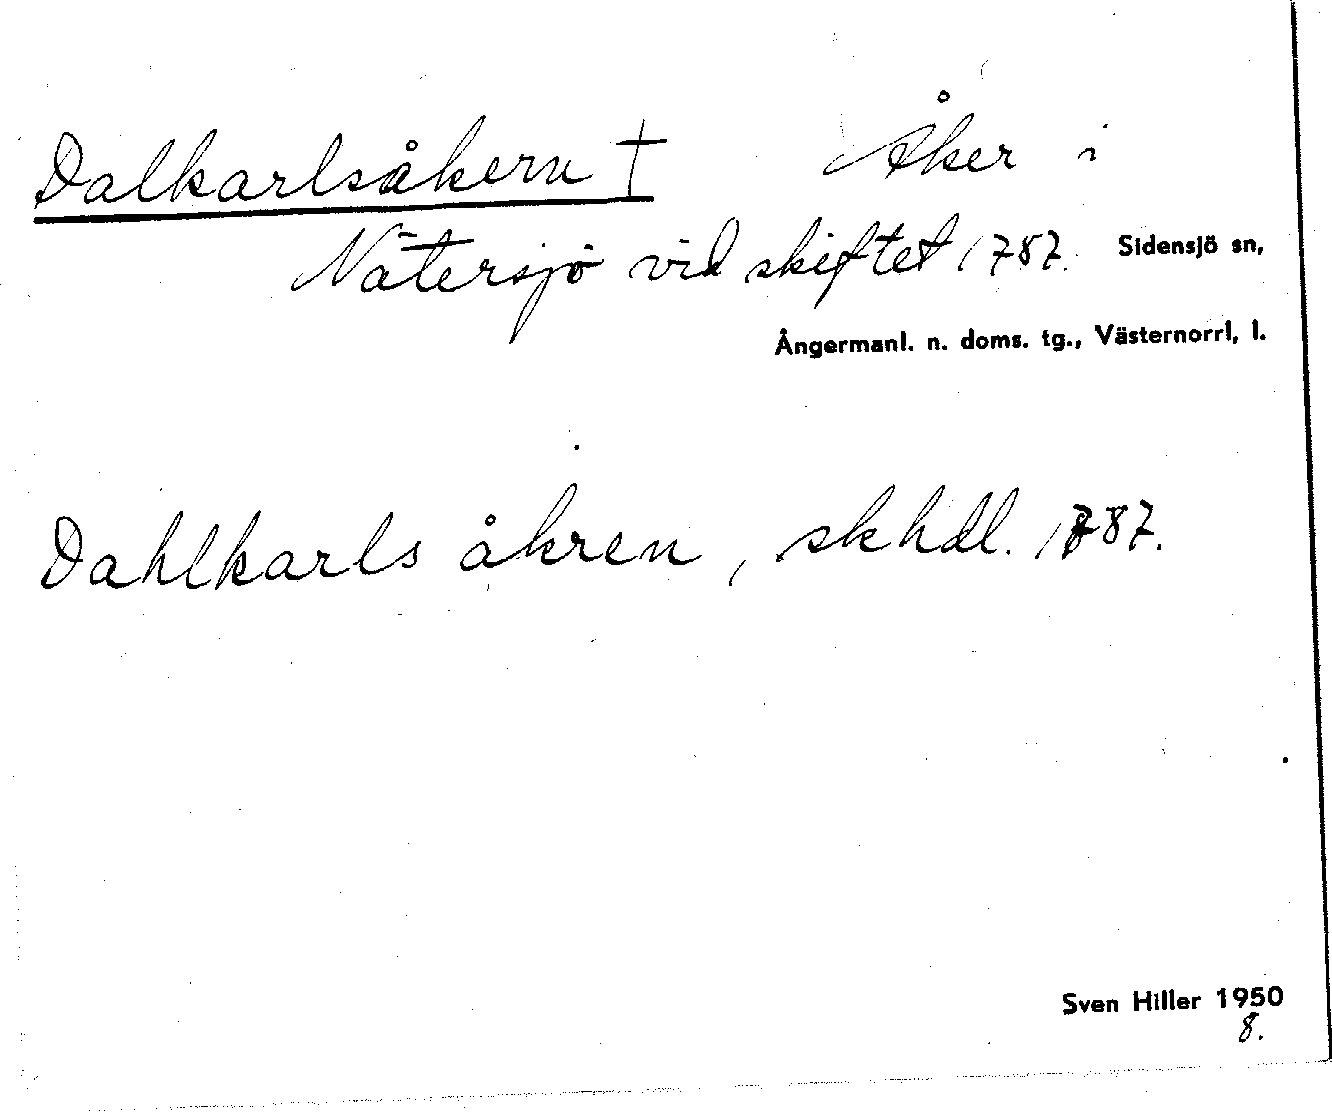 Dalkarlsåkern † Åker i
Nätersjö vid skiftet 1787. Sidensjö sn,
Ångermanl. n. doms. tg., Västernorrl. l.
Dahlkarls åkren, skhdl. 1787.
Sven Hiller 1950
8.